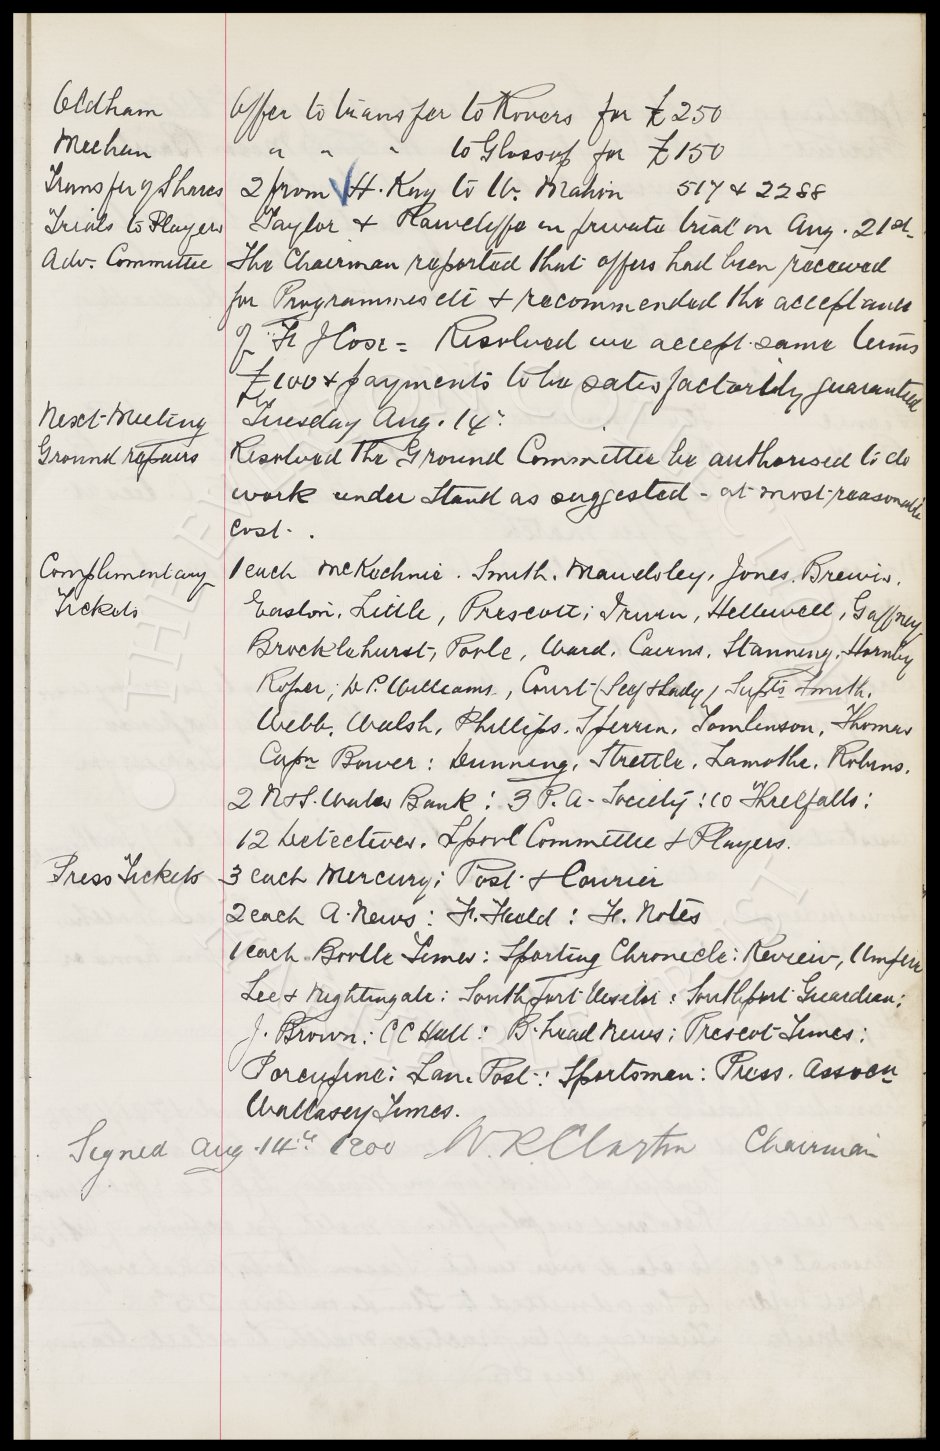 Oldham Offer to transfer to Rovers for £250
Meehan " " " to Glossop for £150
Transfer of Shares 2 from H. Kay to W. Mahon 517 & 2288
Trials to Players Taylor & Rawcliffe in private trial on Aug. 21st
Adv. Committee The Chairman reported that offers had been received
for Programmes etc & recommended the acceptance
of Fr J Cose = Resolved we accept same terms
£100 & payments to be satisfactorily guaranteed
Next Meeting Tuesday Aug. 14th
Ground repairs Resolved the Ground Committee be authorised to do
work under Stand as suggested - at most reasonable
cost.
Complimentary 1 each McKechnie. Smith. Maudsley, Jones, Brewis,
Tickets Easton. Little, Prescott; Irwin, Hellewell, Gaffney
Brocklehurst, Poole, Ward, Cairns, Stanning, Hornby
Roper; D P. Williams, Court (Secy & Lady) Supts Smith,
Webb, Walsh, Phillips. Sperrin, Tomlinson, Thomas
Capn Bower: Dunning, Strettle, Lamothe, Robins.
2 N&S. Wales Bank: 3 P. A. Society: 10 Threlfalls:
12 Detectives. Lpool Committee & Players.
Press Tickets 3 each Mercury; Post & Courier
2 each A. News: F. Field: F. Notes
1 each Bootle Times: Sporting Chronicle: Review, Umpire
Lee & Nightingale: Southport Visitor: Southport Guardian:
J. Brown: CC Hall: B.head News: Prescot Times:
Porcupine: Lan. Post: Sportsman: Press. Assocn
Wallasey Times.
Signed Aug. 14th 1900 W. R. Clayton Chairman